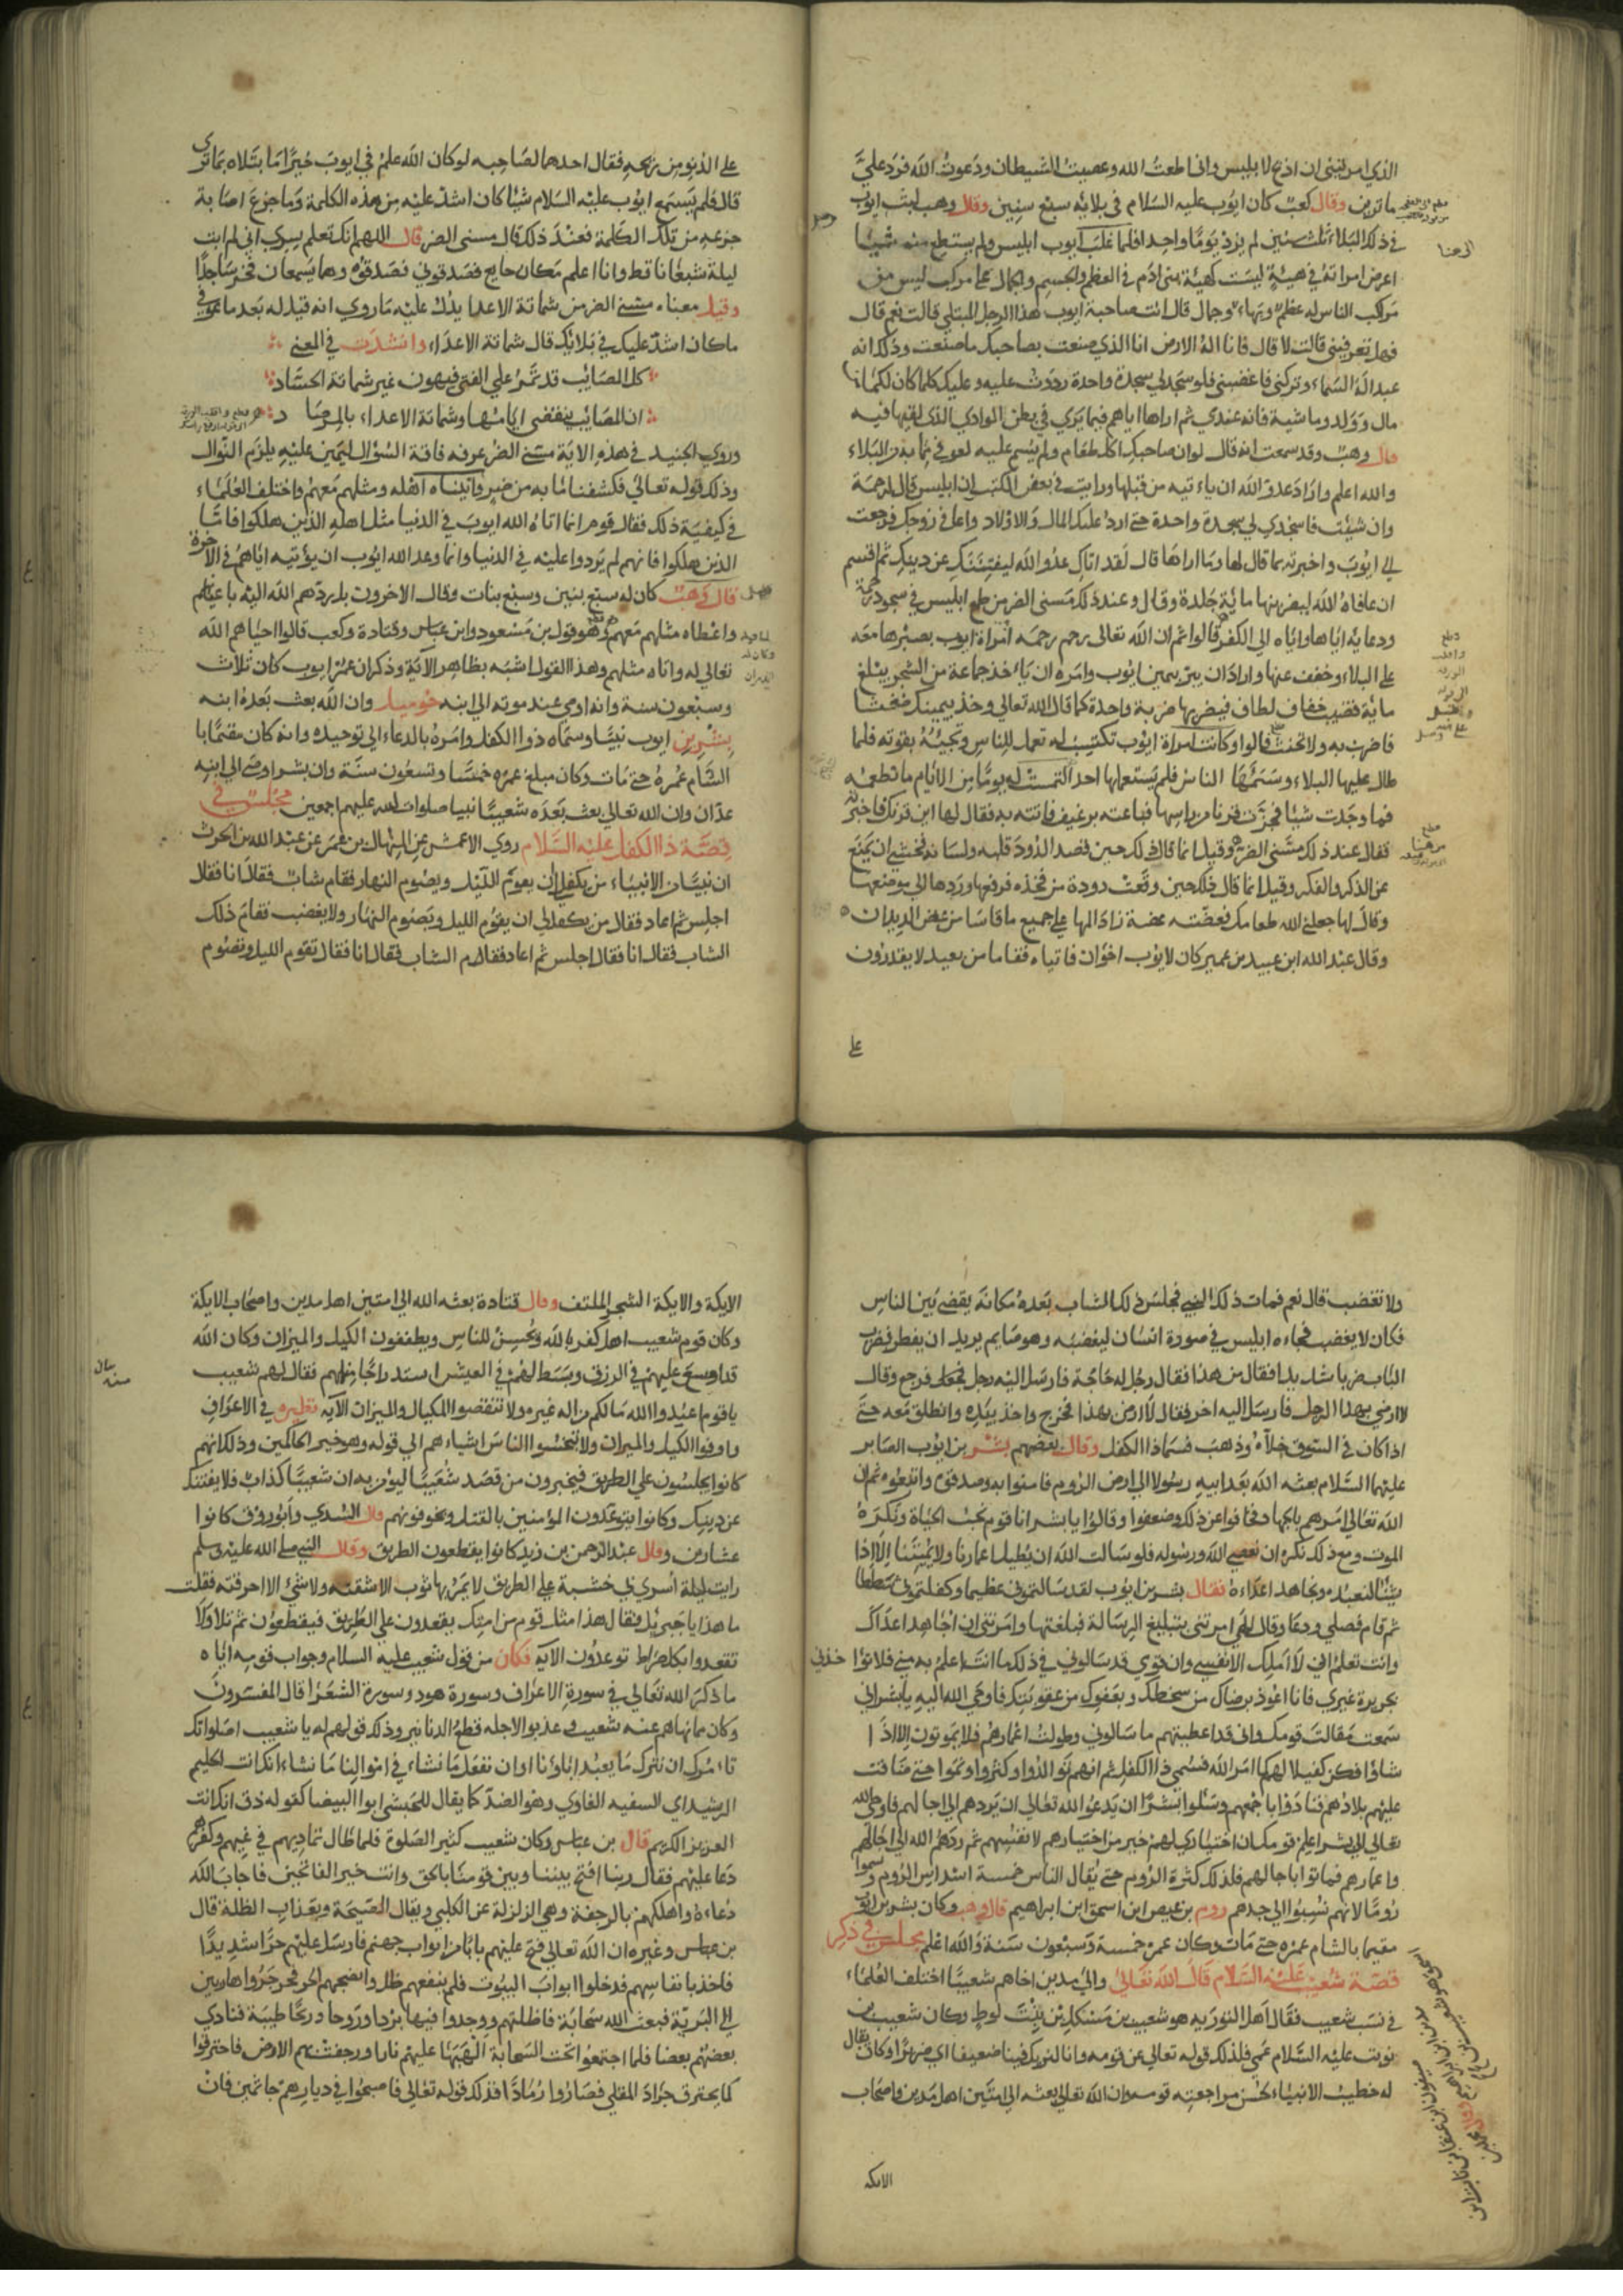 الذي امرتيني ان اذبح لابليس واني اطعت الله وعصيت الشيطان ودعوت الله فرد علي
ماترين وقال كعب كان ايوب عليه السلام في بلائه سبع سنين وقال وهب لبث ايوب
في ذلك البلاء ثلث سنين لم يزد يوما واحدا فلما غلب ايوب ابليس ولم يستطع منه شيا
اعرض امراته في هيئة ليست كهيئة بني ادم في العظم والجسم والجمال على مركب ليس من
مركب الناس له عظم وبهاء وجمال قال انت صاحبة ايوب هذا الرجل المبتلي قالت نعم قال
فهل تعرفيني قالت لا قال فانا اله الارض انا الذي صنعت بصاحبك ما صنعت وذلك انه
عبد اله السماء وتركني فاغضبني فلو سجد لي سجدة واحدة رددت عليه وعليك كلما كان لكما من
مال وولد وماشية فانه عندي ثم اراها اياهم فيما يري في بطن الوادي الذي لقيها فيه
قال وهب وقد سمعت انه قال لو ان صاحبك اكل طعام ولم يسم عليه لعوفي مما به من البلاء
والله اعلم واراد عدو الله ان ياءتيه من قبلها ورايت في بعض الكتب ان ابليس قال لرحمة
وان شيت فاسجدي لي سجدة واحدة حتي ارد عليك المال والاولاد واعافي زوجك فرجعت
الي ايوب واخبرته بما قال لها وما اراها قال لقد اتاك عدو الله ليفتننك عن دينك ثم اقسم
ان عافاه الله ليضربنها مائة جلدة وقال وعند ذلك مسني الضر من طمع ابليس في سجود رحمة
ودعايه اياها واياه الي الكفر قالوا ثم ان الله تعالي رحم رحمه امراة ايوب بصبرها معه
على البلاء وخفف عنها واراد ان يبر يمين ايوب وامره ان ياءخذ جماعة من الشجر يبلغ
ماية قضيب خفاف لطاف فيضربها ضربة واحدة كما قال الله تعالي وخذ بيدك ضغثا
فاضرب به ولا تحنث قالوا وكانت امراة ايوب تكتسب له تعمل للناس وتجيئه بقوته فلما
طال عليها البلاء وسئمها الناس فلم يستعملها احد التمست له يوما من الايام ما تطعمه
فما وجدت شيا فجزت قرنا من راسها فباعته برغيف فاتته به فقال لها اين قرنك فاخبرته
فقال عند ذلك مسني الضر وقيل انما قال ذلك حين قصد الدود قلبه ولسانه فخشي ان يمنع
عن الذكر والفكر وقيل انما قال ذلك حين وقعت دودة من فخذه فرفعها وردها الي موضعها
وقال لها جعلني الله طعامك فعضته عضة زاد المها على جميع ما قاسا من عض الديدان
وقال عبد الله ابن عبيد بن عمير كان لايوب اخوان فاتياه فقاما من بعيد لا يقدرون
على
على الدنو من ريحه فقال احدهما لصاحبه لو كان الله علم في ايوب خيرا ما بتلاه بما تري
قال فلم يسمع ايوب عليه السلام شيا كان اشد عليه من هذه الكلمة وما جزع اصابة
جزعه من تلك الكلمة فعند ذلك قال مسني الضر قال اللهم ان كنت تعلم اني لم ابت
ليلة شبعانا قط وانا اعلم مكان جايع فصدقوني فصدقوه وهما يسمعان فخر ساجدا
وقيل معناه مسني الضر من شماتة الاعدا يدل عليه ما روي انه قيل له بعد ما عوفي
ما كان اشد عليك في بلائك قال شماتة الاعداء وانشدت في المعني
كل المصائب قد تمر علي الفتي فيهون غير شماتة الحساد
ان المصائب ينقضي ايامها وشماتة الاعداء بالمرصاد
وروي الجنيد في هذه الاية مسني الضر عرفه فاقة السؤال ليمين عليه بلزم النوال
وذلك قوله تعالي فكشفنا ما به من ضر واتيناه اهله ومثلهم معهم واختلف العلماء
في كيفية ذلك فقال قوم انما اتاه الله ايوب في الدنيا مثل اهله الذين هلكوا فاما
الذين هلكوا فانهم لم يردوا عليه في الدنيا وانما وعد الله ايوب ان يؤتيه اياهم في الاخرة
قال وهب كان له سبع بنين وسبع بنات وقال الاخرون بل ردهم الله اليه باعيانهم
واعطاه مثلهم معهم وهو قول بن مسعود وابن عباس وقتادة وكعب قالوا احياهم الله
تعالي له واتاه مثلهم وهذا القول اشبه بظاهر الاية وذكر ان عمر ايوب كان ثلاث
وسبعون سنة وانه اوصي عند موته الي ابنه حوميل وان الله بعث بعده ابنه
بشر بن ايوب نبيا وسماه ذوا الكفل وامره بالدعاء الي توحيده وانه كان مقيما با
الشام عمره حتي مات وكان مبلغ عمره خمسا وتسعون سنة وان بشر اوصي الي ابنه
عدان وان الله تعالي بعث بعده شعيبا نبيا صلوات الله عليهم اجمعين مجلس في
قصة ذا الكفل عليه السلام روي الاعمش عن المنهال بن عمر عن عبد الله بن الحرث
ان نبيا من الانبياء من يكفل ان يقوم الليل ويصوم النهار فقام شاب فقال انا فقال
اجلس ثم اعاد فقال من يكفل لي ان يقوم الليل ويصوم النهار ولا يغضب فقام ذلك
الشاب فقال انا فقال اجلس ثم اعاد فقام الشاب فقال انا فقال تقوم الليل وتصوم
ولا تغضب قال نعم فمات ذلك النبي فجلس ذلك الشاب بعده مكانه يقضي بين الناس
فكان لا يغضب فجاءه ابليس في صورة انسان ليغضبه وهو صايم يريد ان يفطر فضرب
الباب ضربا شديدا فقال من هذا فقال رجل له حاجة فارسل اليه رجل فرجع وقال
لا ارضي بهذا الرجل فارسل اليه اخر فقال لا ارضي بهذا فخرج واخذ بيده وانطلق معه حتي
اذا كان في السوق خلاه وذهب فسما ذا الكفل وقال بعضهم بشر بن ايوب الصابر
عليهما السلام بعثه الله بعد ابيه رسولا الي ارض الروم فامنوا به وصدقوه واتبعوه ثم ان
الله تعالي امرهم بالجهاد فخافوا عن ذلك وضعفوا وقالوا يا بشر انا قوم نحب الحياة ونكره
الموت ومع ذلك نكره ان نعصي الله ورسوله فلو سالت الله ان يطيل اعمارنا ولا يميتنا الا اذا
شئنا لنعبده ونجاهد اعداءه فقال بشر بن ايوب لقد سالتموني عظيما وكفلتموني شططا
ثم قام فصلي ودعا وقال الهي امرتني بتبليغ الرسالة فبلغتها وامرتني ان اجاهد اعداك
وانت تعلم اني لا املك الا نفسي وان قومي قد سالوني في ذلك ما انت اعلم به مني فلا تؤاخذني
بجريرة غيري فانا اعوذ برضاك من سخطك وبعفوك من عقوبتك فاوحي الله اليه يا بشر اني
سمعت مقالت قومك واني قد اعطيتهم ما سالوني وطولت اعمارهم فلا يموتون الا اذا
شاؤا فكن كفيلا لهم كما امر الله فسمي ذا الكفل ثم انهم توالدوا وكثروا ونموا حتي ضاقت
عليهم بلادهم فنادوا باجمعهم وسئلوا بشرا ان يدعوا الله تعالي ان يردهم الي اجالهم فاوحي الله
تعالي الي بشر اعلم قومك ان اختياري لهم خير من اختيارهم لانفسهم ثم ردهم الله الي اجالهم
واعمارهم فماتوا باجالهم فلذلك كثرة الروم حتي يقال الناس خمسة اسداس الروم وسموا
روما لانهم نسبوا الي جدهم روم بن عيص ابن اسحق ابن ابراهيم قال وهب وكان بشر بن ايوب
مقيما بالشام عمره حتي مات وكان عمره خمسة وسبعون سنة والله اعلم مجلس في ذكر
قصة شعيب عليه السلام قال الله تعالي والي مدين اخاهم شعيبا اختلف العلماء
في نسب شعيب فقال اهل التورية هو شعيب بن بنت لوط وكان شعيب بن
نويت عليه السلام عمي فلذلك قوله تعالي عن قومه وانا لنريك فينا ضعيفا اي ضريرا وكان يقال
له خطيب الانبياء لحسن مراجعته قومه وان الله تعالي بعثه الي امتين اهل مدين واصحاب
الايكة
الايكة والايكة الشجر الملتف وقال قتادة بعثه الله الي امتين اهل مدين واصحاب الايكة
وكان قوم شعيب اهل كفر بالله وبخس للناس ويطففون الكيل والميزان وكان الله
قد اوسع عليهم في الرزق وبسط لهم في العيش استدراجا منه لهم فقال لهم شعيب
يا قوم اعبدوا الله مالكم من اله غيره ولا تنقصوا المكيال والميزان الاية نظيره في الاعراف
واوفوا الكيل والميزان ولا تبخسوا الناس اشياءهم الي قوله وهو خير الحاكمين وذلك انهم
كانوا يجلسون علي الطريق فيخبرون من قصد شعيبا ليؤمن به ان شعيبا كذاب فلا يفتنك
عن دينك وكانوا يتوعدون المؤمنين بالقتل ويخوفونهم قال السدي وابو روق كانوا
عشارين وقال عبد الرحمن بن زيد كانوا يقطعون الطريق وقال النبي صلي الله عليه وسلم
رايت ليلة اسري بي خشبة علي الطريق لا يمر بها ثوب الا شقته ولا شئ الا احرقته فقلت
ما هذا يا جبريل فقال هذا مثل قوم من امتك يقعدون علي الطريق فيقطعون ثم تلا ولا
تقعدوا بكل صراط توعدون الاية فكان من قول شعيب عليه السلام وجواب قومه اياه
ما ذكر الله تعالي في سورة الاعراف وسورة هود وسورة الشعرا قال المفسرون
وكان مما نهاهم عنه شعيب وعذبوا لاجله قطع الدنانير وذلك قولهم له يا شعيب اصلواتك
تاءمرك ان نترك ما يعبد اباؤنا او ان نفعل ما نشاء في اموالنا ما نشاء انك انت الحليم
الرشيد اي السفيه الغاوي وهو الضد كما يقال للحبشي ابوا البيضا كقوله ذق انك انت
العزيز الكريم قال بن عباس وكان شعيب كثير الصلوة فلما طال تماديهم في غيهم وكفرهم
دعا عليهم فقال ربنا افتح بيننا وبين قومنا بالحق وانت خير الفاتحين فاجاب الله
دعاءه واهلكهم بالرجفة وهي الزلزلة عن الكلبي ويقال الصيحة وبعذاب الظلة قال
بن عباس وغيره ان الله تعالي فتح عليهم بابا من ابواب جهنم فارسل عليهم حرا شديدا
فاخذ بانفاسهم فدخلوا ابواب البيوت فلم ينفعهم ظل وانضجهم الحر فخرجوا هاربين
الي البرية فبعث الله سحابة فاظلتهم ووجدوا فيها بردا وروحا وريحا طيبة فنادي
بعضهم بعضا فلما اجتمعوا تحت السحابة الهبها عليهم نارا ورجفت بهم الارض فاحترقوا
كما يحترق جراد المقلي فصاروا رمادا فذلك قوله تعالي فاصبحوا في ديارهم جاثمين فان